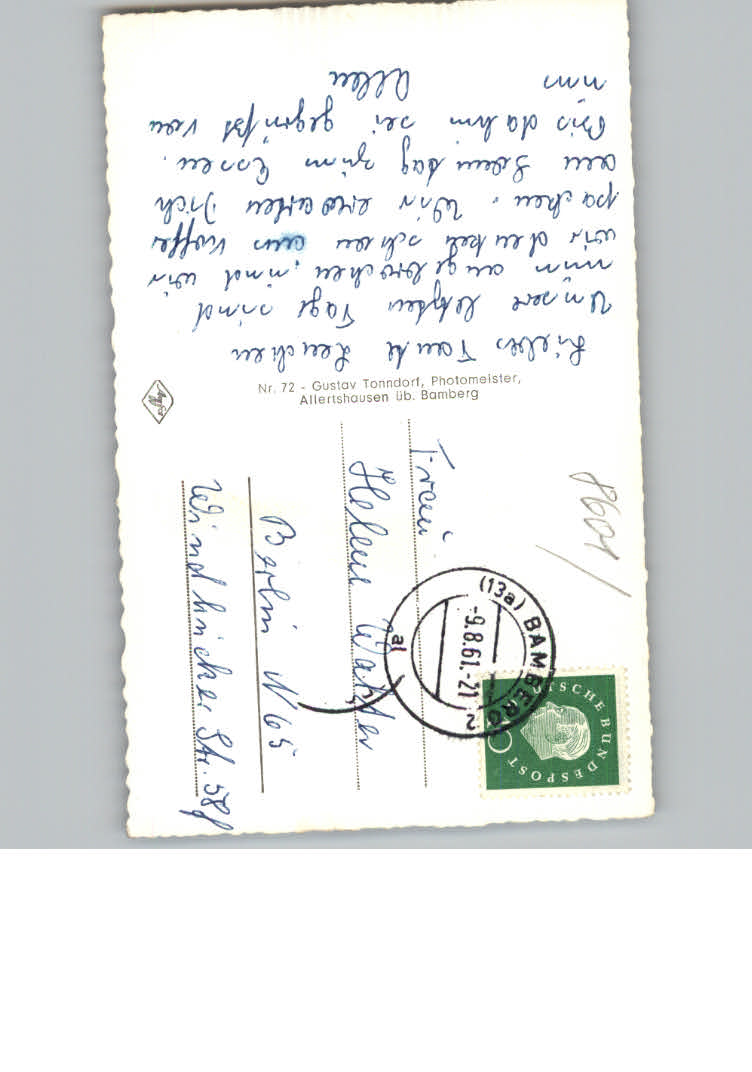 Liebes Tante Lenchen
Unsere letzten Tage sind
nun angebrochen, und wir
wir denken schon ans Koffer
packen. Wir erwarten Dich
am Sonntag zum Essen.
Bis dahin sei gegrüßt von
uns Allen
Nr. 72 - Gustav Tonndorf, Photomeister,
Allertshausen üb. Bamberg
Agfa
Frau
Helene Walter
Berlin N 65
Windhuker Str. 58f
8601/
(13a) BAMBERG 2
-9.8.61.-21
al
DEUTSCHE BUNDESPOST